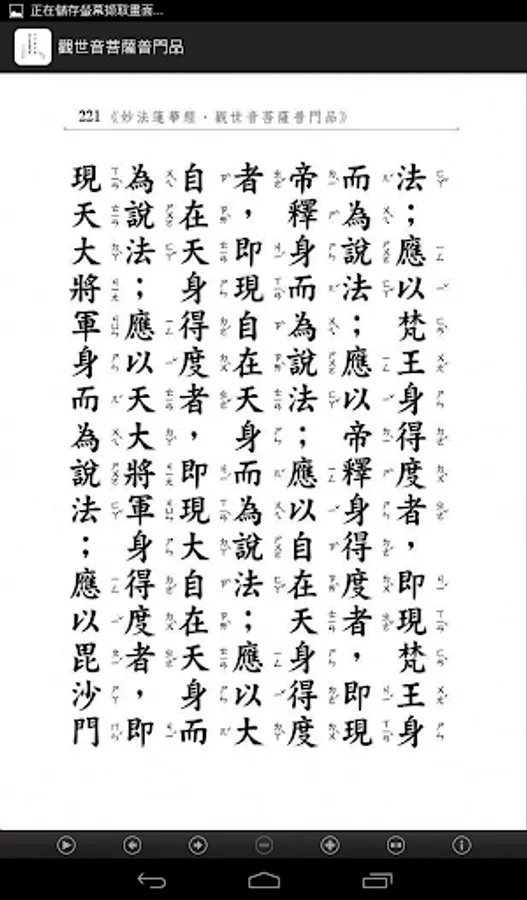 正在儲存螢幕擷取畫面...
觀世音菩薩普門品
221《妙法蓮華經·觀世音菩薩普門品》
法；應以梵王身得度者，即現梵王身
而為說法；應以帝釋身得度者，即現
帝釋身而為說法；應以自在天身得度
者，即現自在天身而為說法；應以大
自在天身得度者，即現大自在天身而
為說法；應以天大將軍身得度者，即
現天大將軍身而為說法；應以毘沙門